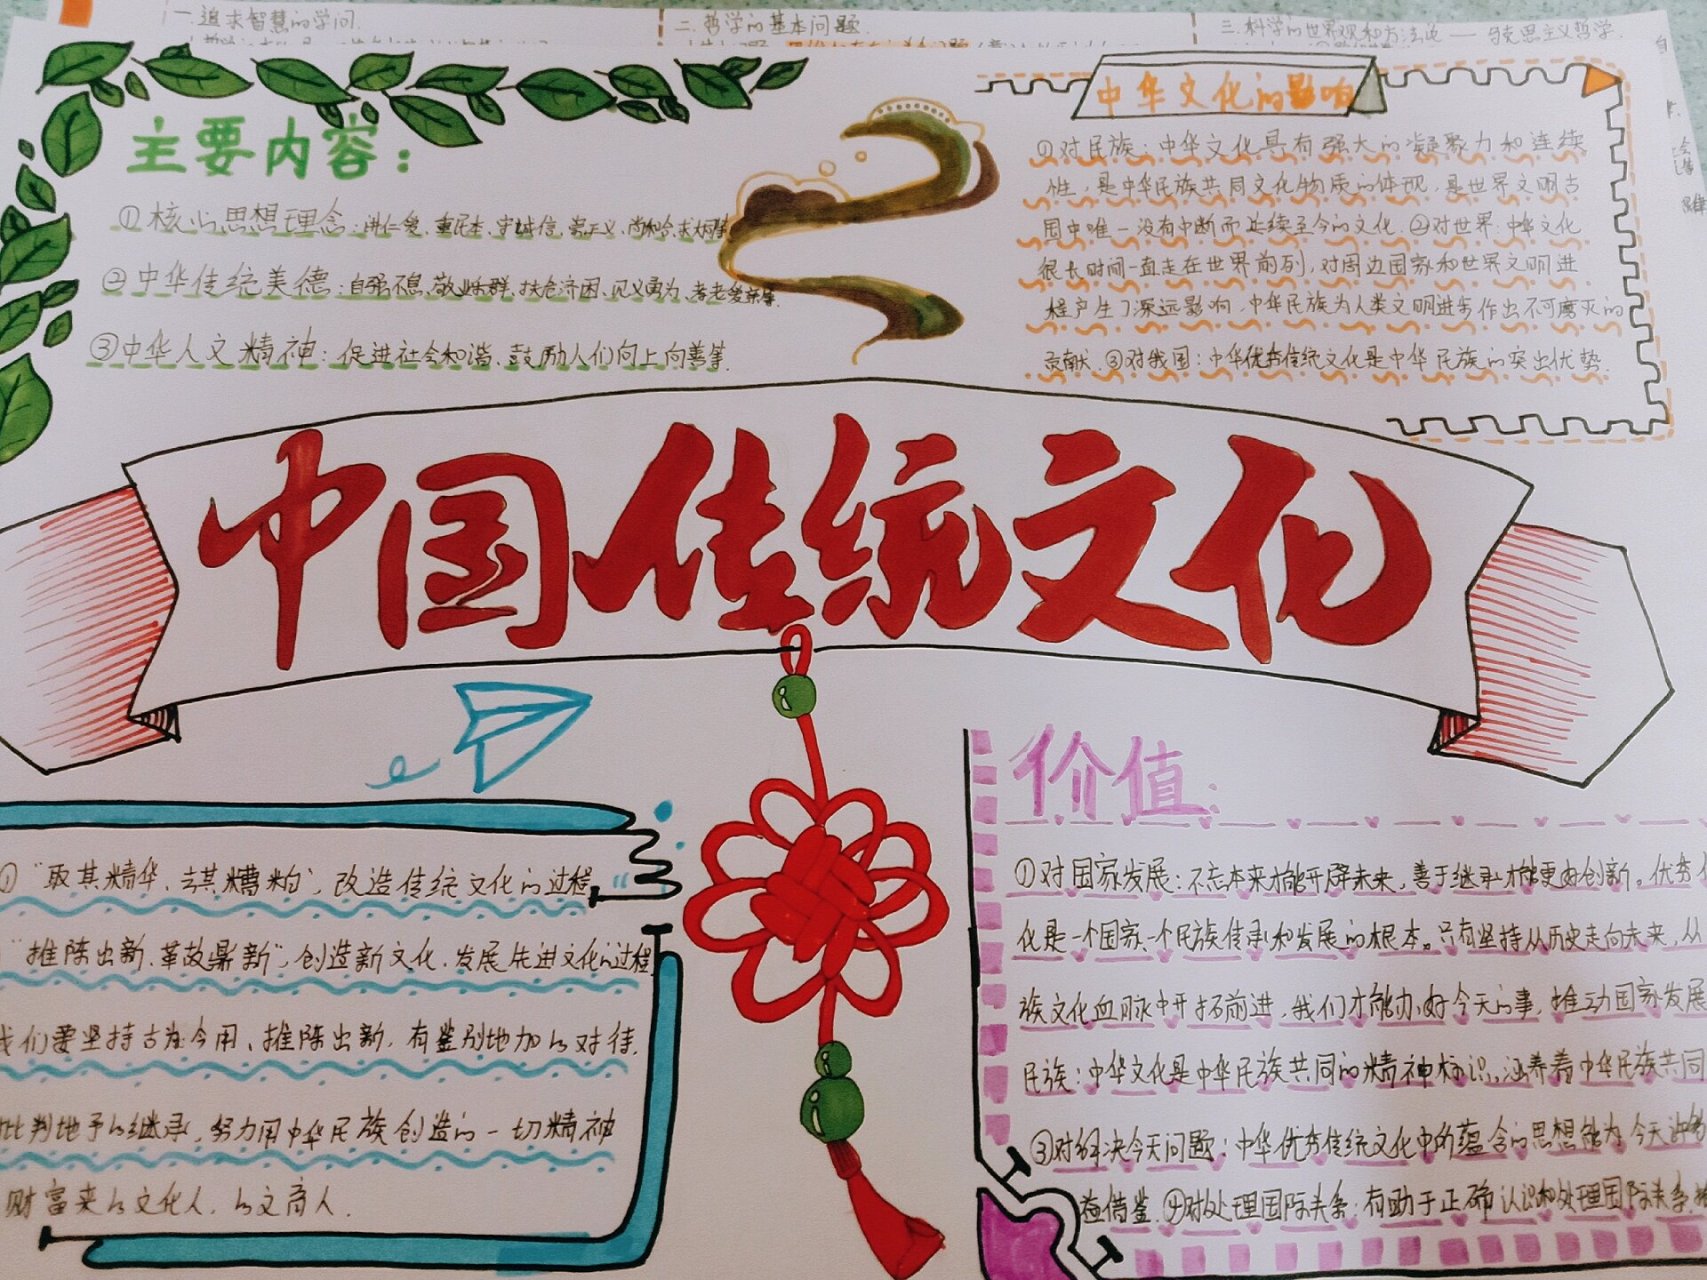 一.追求智慧的学问.
二.哲学的基本问题.
三.科学的世界观和方法论——马克思主义哲学.
主要内容:
①核心思想理念:讲仁爱、重民本、守诚信、崇正义、尚和合、求大同等
②中华传统美德:自强不息、敬业乐群、扶危济困、见义勇为、孝老爱亲等.
③中华人文精神:促进社会和谐、鼓励人们向上向善等.
中华文化的影响
①对民族:中华文化具有强大的凝聚力和连续
性,是中华民族共同文化物质的体现,是世界文明古
国中唯一没有中断而延续至今的文化.②对世界:中华文化
很长时间一直走在世界前列,对周边国家和世界文明进
程产生了深远影响,中华民族为人类文明进步作出不可磨灭的
贡献.③对我国:中华优秀传统文化是中华民族的突出优势.
中国传统文化
① "取其精华、去其糟粕",改造传统文化的过程
"推陈出新、革故鼎新",创造新文化、发展先进文化的过程
我们要坚持古为今用、推陈出新,有鉴别地加以对待,
批判地予以继承,努力用中华民族创造的一切精神
财富来以文化人,以文育人.
价值:
①对国家发展:不忘本来才能开辟未来,善于继承才能更好创新。优秀
化是一个国家、一个民族传承和发展的根本。只有坚持从历史走向未来,从
族文化血脉中开拓前进,我们才能办好今天的事,推动国家发展
民族:中华文化是中华民族共同的精神标识,涵养着中华民族共同
③对解决今天问题:中华优秀传统文化中的蕴含的思想能为今天
益借鉴.④对处理国际关系:有助于正确认识和处理国际关系.